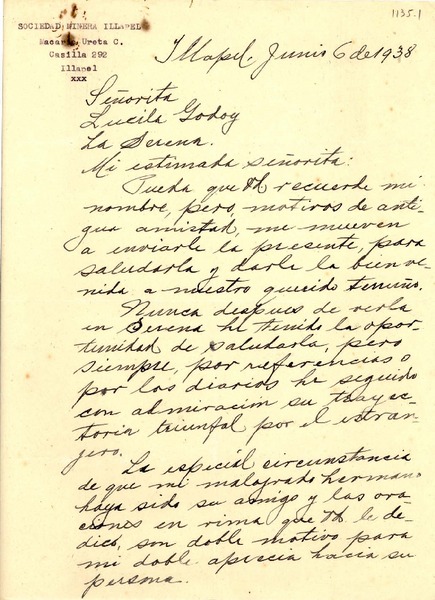 1135-1
SOCIEDAD MINERA ILLAPEL
Macario Ureta C.
Casilla 292
Illapel
xxx
Illapel, Junio 6 de 1938
Señorita
Lucila Godoy
La Serena.
Mi estimada señorita:
Pueda que Ud recuerde mi
nombre, pero, motivos de anti-
gua amistad, me mueven
a enviarle la presente, para
saludarla y darle la bienve-
nida a nuestro querido terruño.
Nunca despues de verla
en Serena he tenido la opor-
tunidad de saludarla, pero
siempre, por referencias o
por los diarios he seguido
con admiración su trayec-
toria triunfal por el extran-
jero.
La especiál circunstancia
de que mi malogrado hermano
haya sido su amigo y las ora
ciones en rima que Ud le de-
dicó, son doble motivo para
mi doble aprecia hacia su
persona.